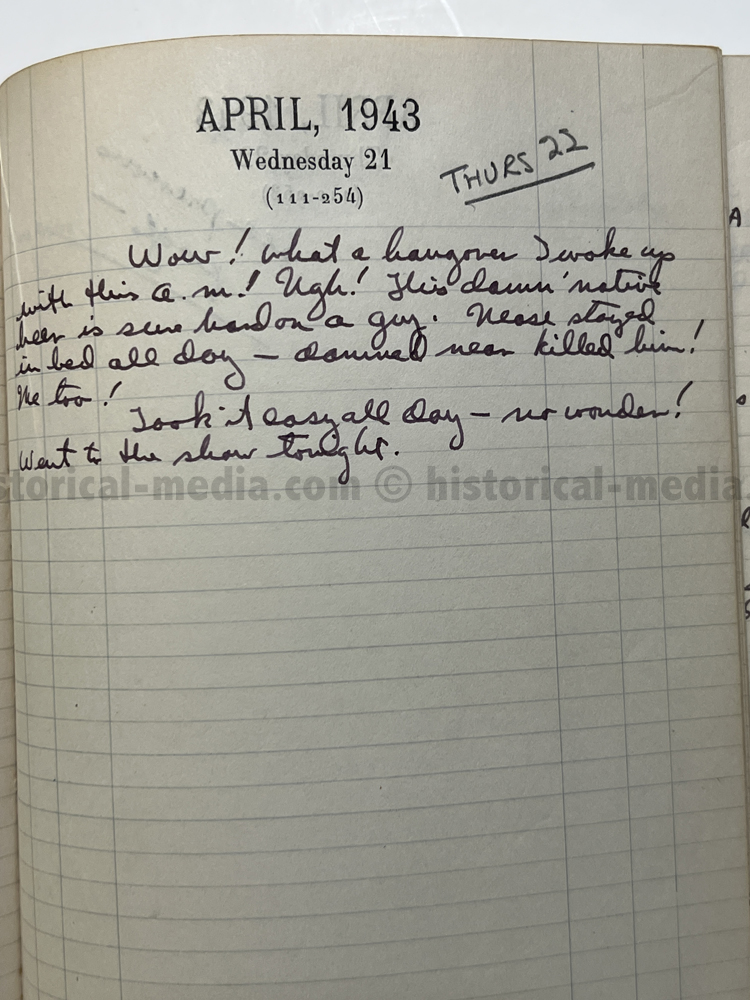 APRIL, 1943
Wednesday 21
(111-254)
THURS 22
Wow! What a hangover I woke up
with this a.m.! Ugh! This damn' native
beer is sure hard on a guy. Nease stayed
in bed all day — damned near killed him!
Me too!
Took it easy all day — no wonder!
Went to the show tonight.
storical-media.com © historical-media